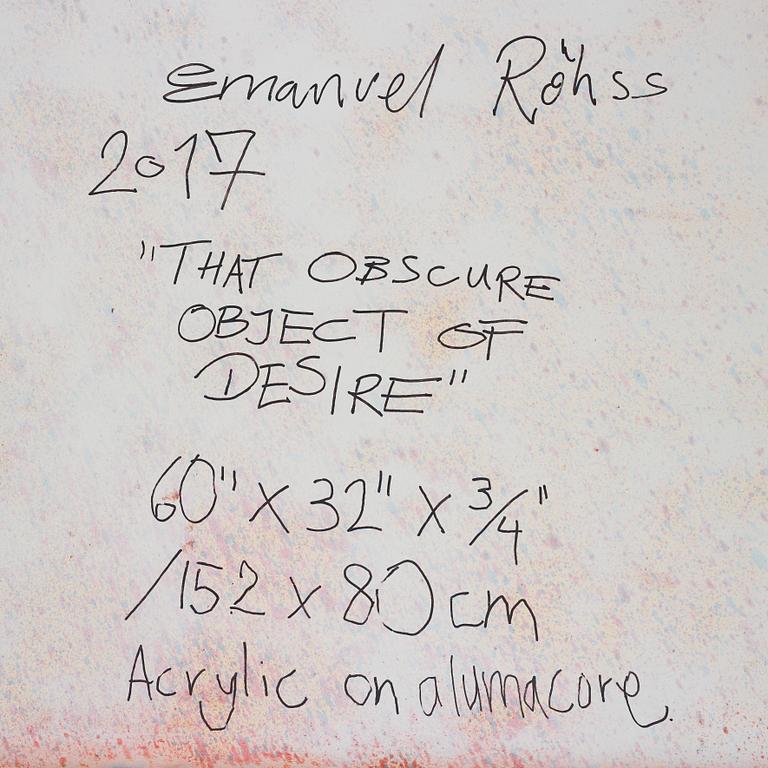 Emanuel Röhss
2017
"THAT OBSCURE
OBJECT OF
DESIRE"
60" x 32" x 3/4"
/152 x 80 cm
Acrylic on alumacore.